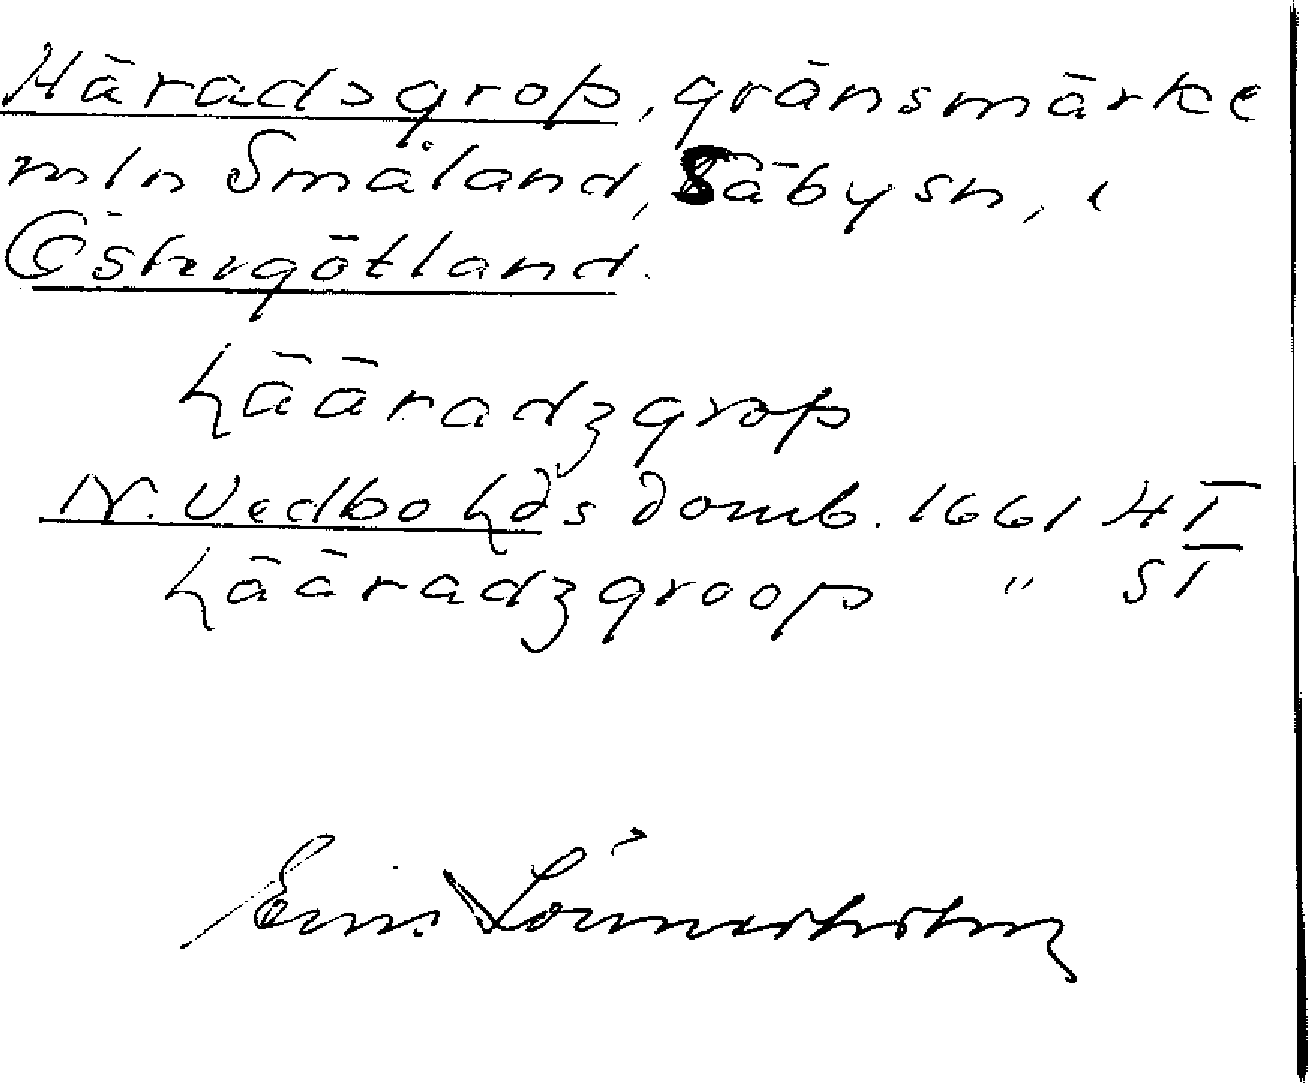 Häradsgrop, gränsmärke
mln Småland, Säby sn, i
Östergötland.
hääradzgrop
N. Vedbo hds domb. 1661 HT
hääradzgroop " ST